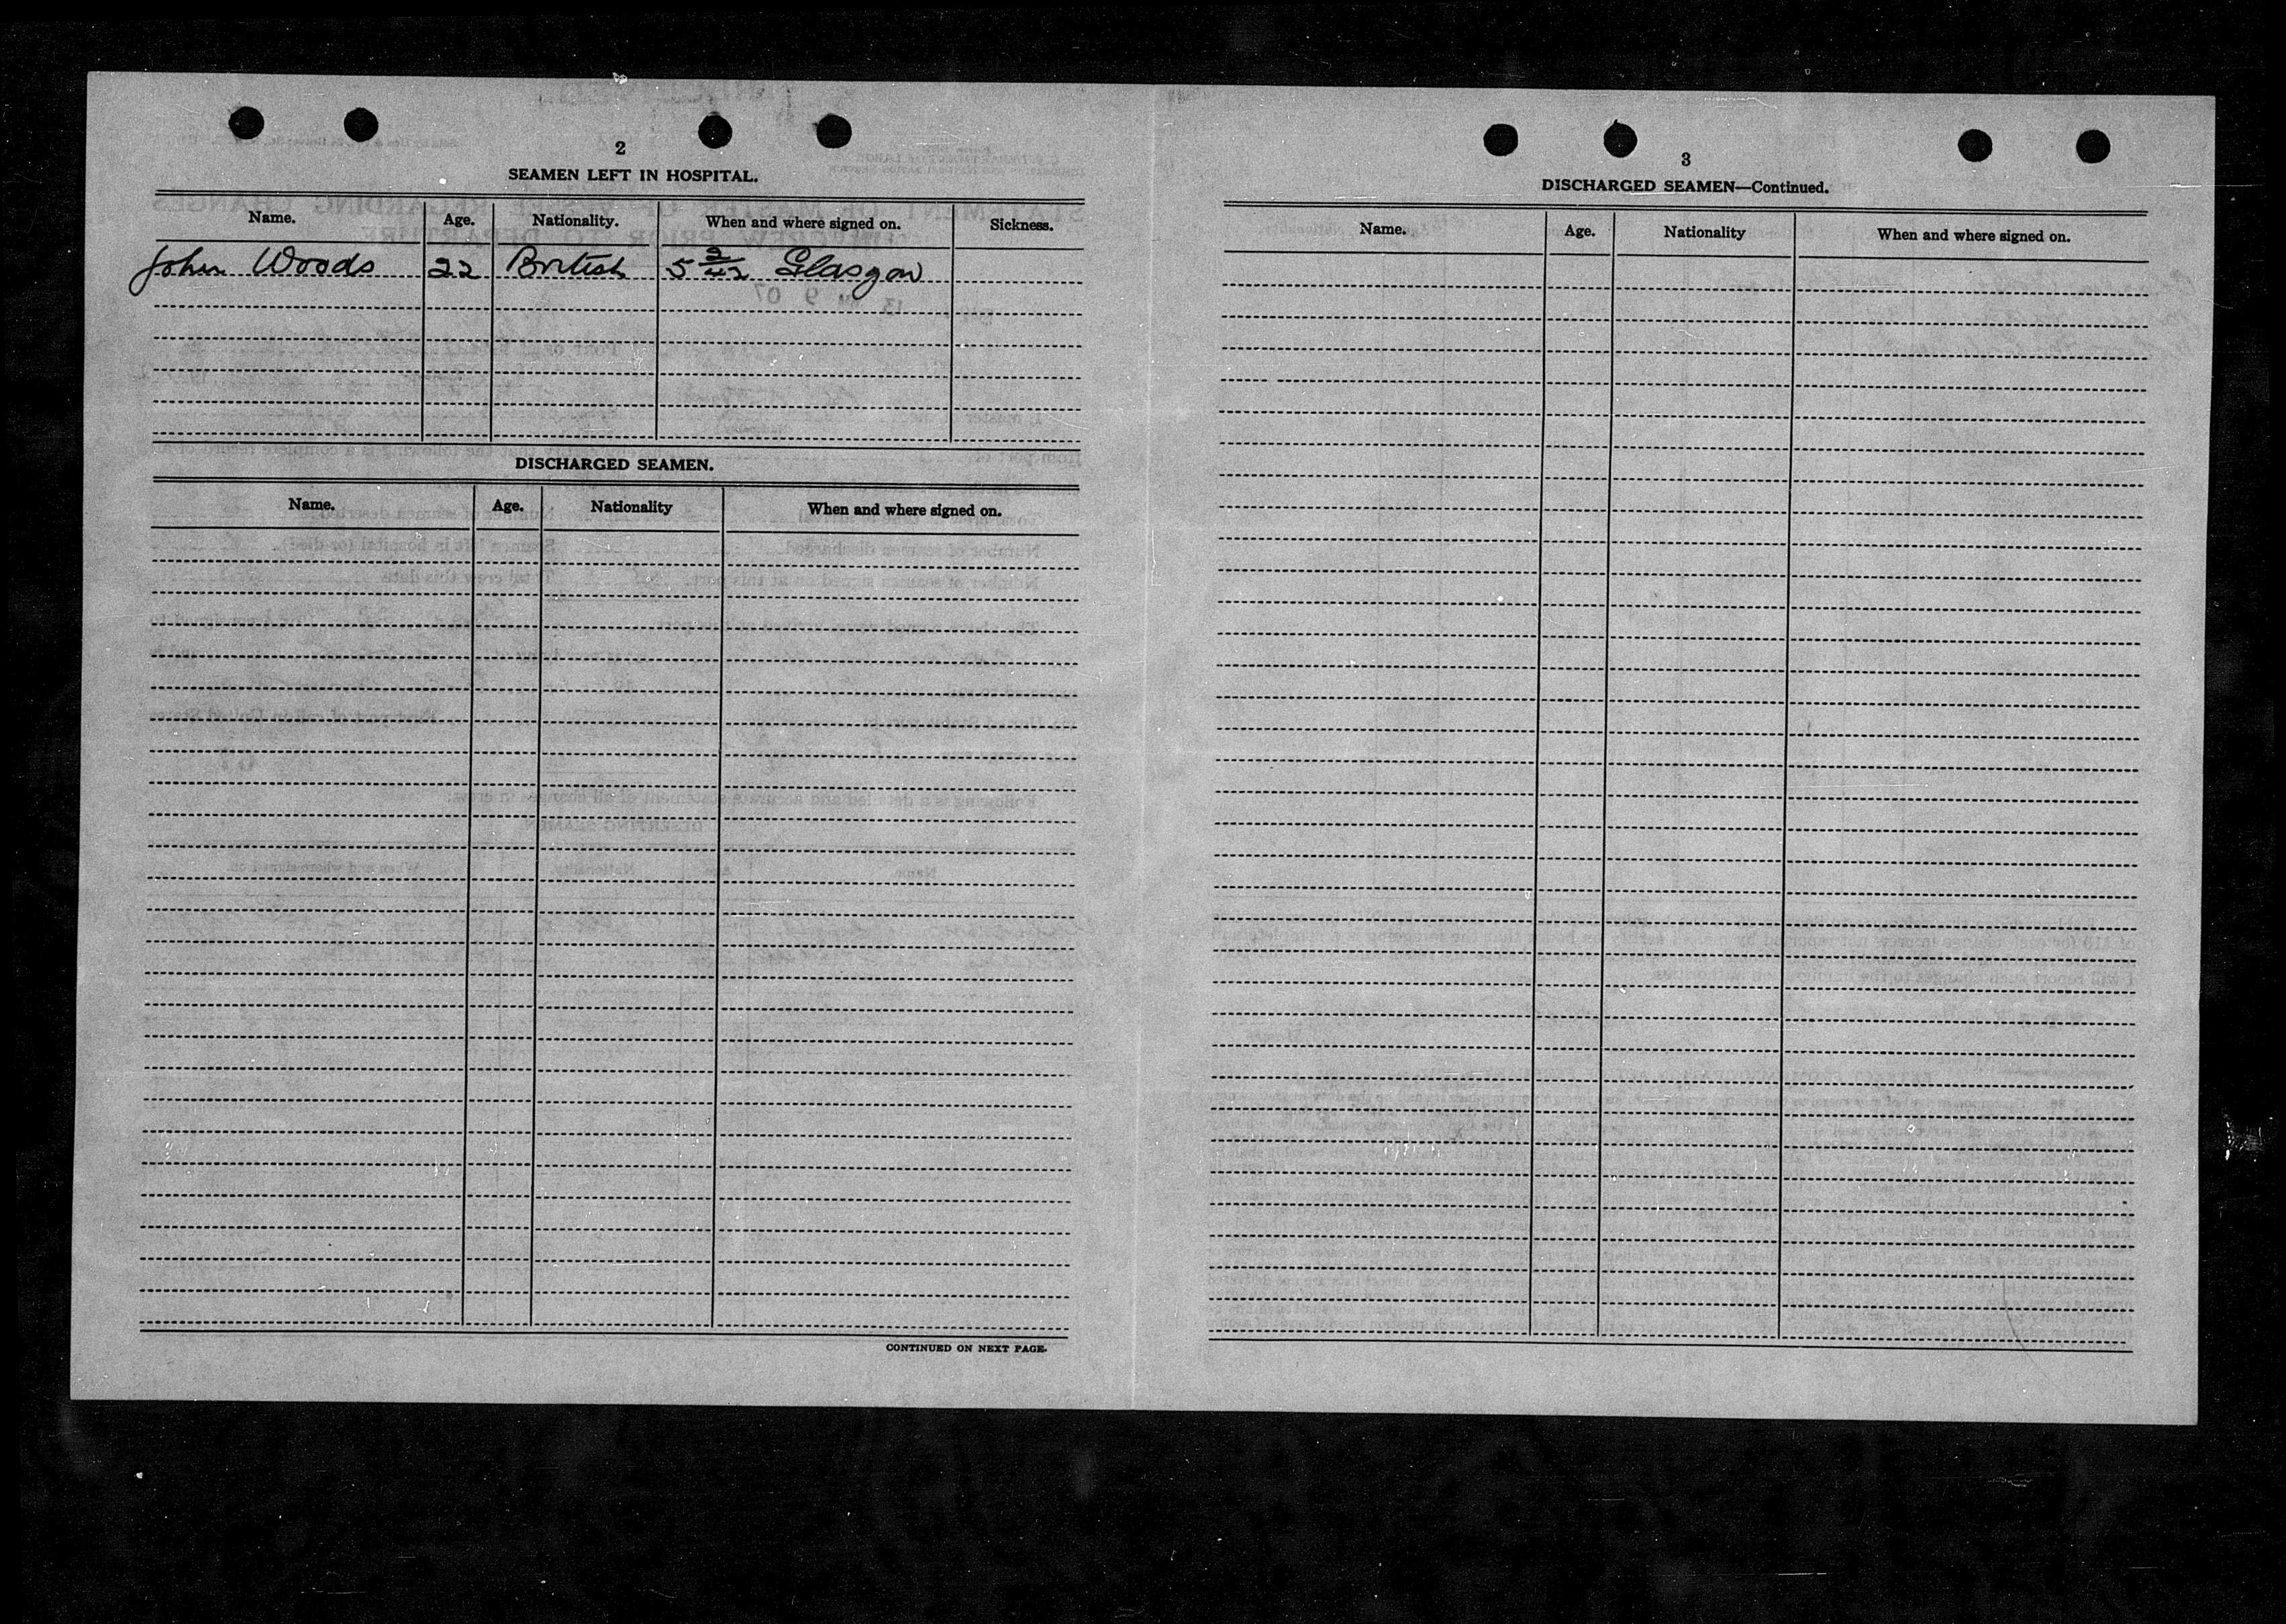 2
SEAMEN LEFT IN HOSPITAL.
Name. Age. Nationality. When and where signed on. Sickness.
John Woods 22 British 5 2/42 Glasgow
DISCHARGED SEAMEN.
Name. Age. Nationality When and where signed on.
CONTINUED ON NEXT PAGE.
3
DISCHARGED SEAMEN—Continued.
Name. Age. Nationality When and where signed on.